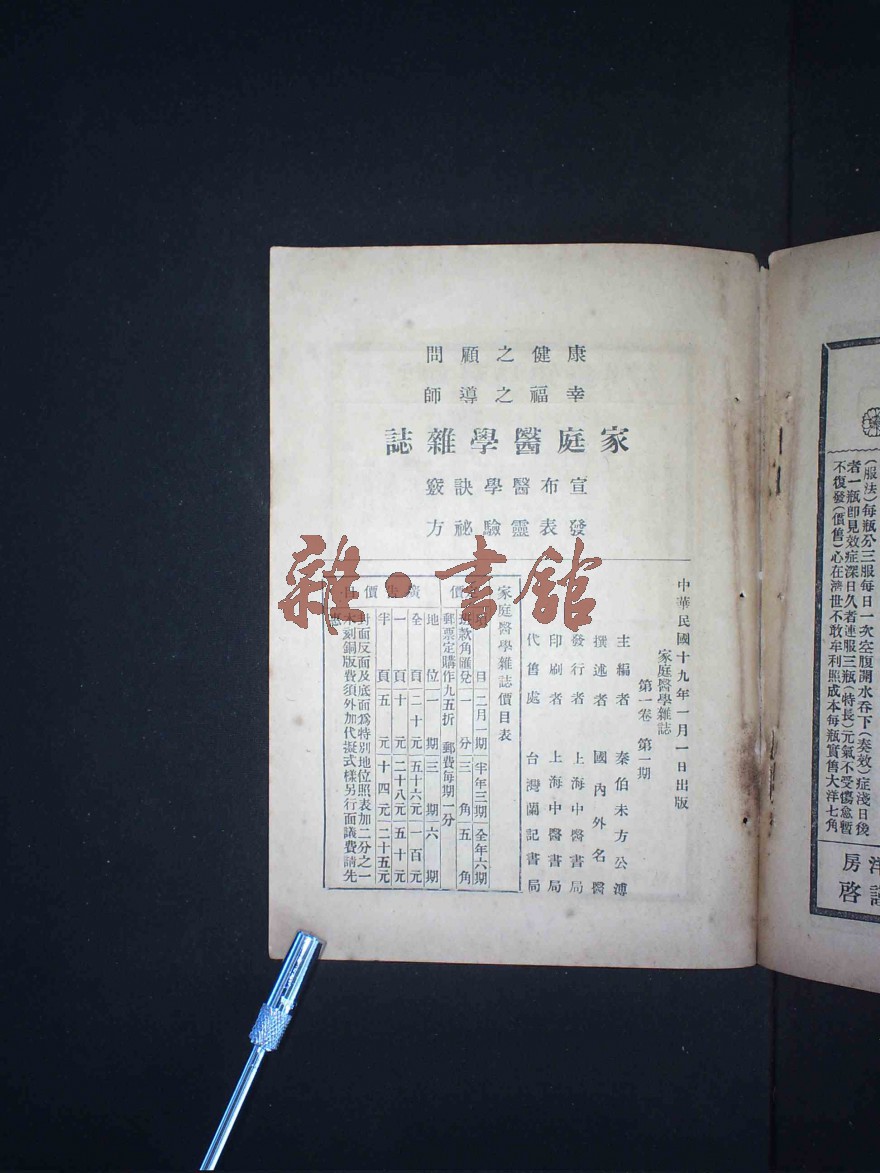 康健之顧問
幸福之導師
家庭醫學雜誌
宣布醫學訣竅
發表靈驗祕方
中華民國十九年一月一日出版
家庭醫學雜誌
第一卷 第一期
主編者 秦伯未 方公溥
撰述者 國內外名醫
發行者 上海中醫書局
印刷者 上海中醫書局
代售處 台灣蘭記書局
家庭醫學雜誌價目表
目 二月一期 半年三期 全年六期
價 一角 三角 五角
郵票定購作九五折 郵費每期一分
地位 一期 三期 六期
全頁 二十元 五十六元 一百元
一頁 十元 二十八元 五十元
半頁 五元 十四元 二十五元
封面反面及底面為特別地位照表加二分之一
木刻銅版費須外加代擬式樣另行面議費請先惠
雜·書館
(服法)每瓶分三服每日一次空腹開水吞下(奏效)症淺日後
者一瓶即見效症深日久者連服三瓶(特長)元氣不受傷愈暫
不復發(價售)心在濟世不敢牟利照成本每瓶實售大洋七角
房啓